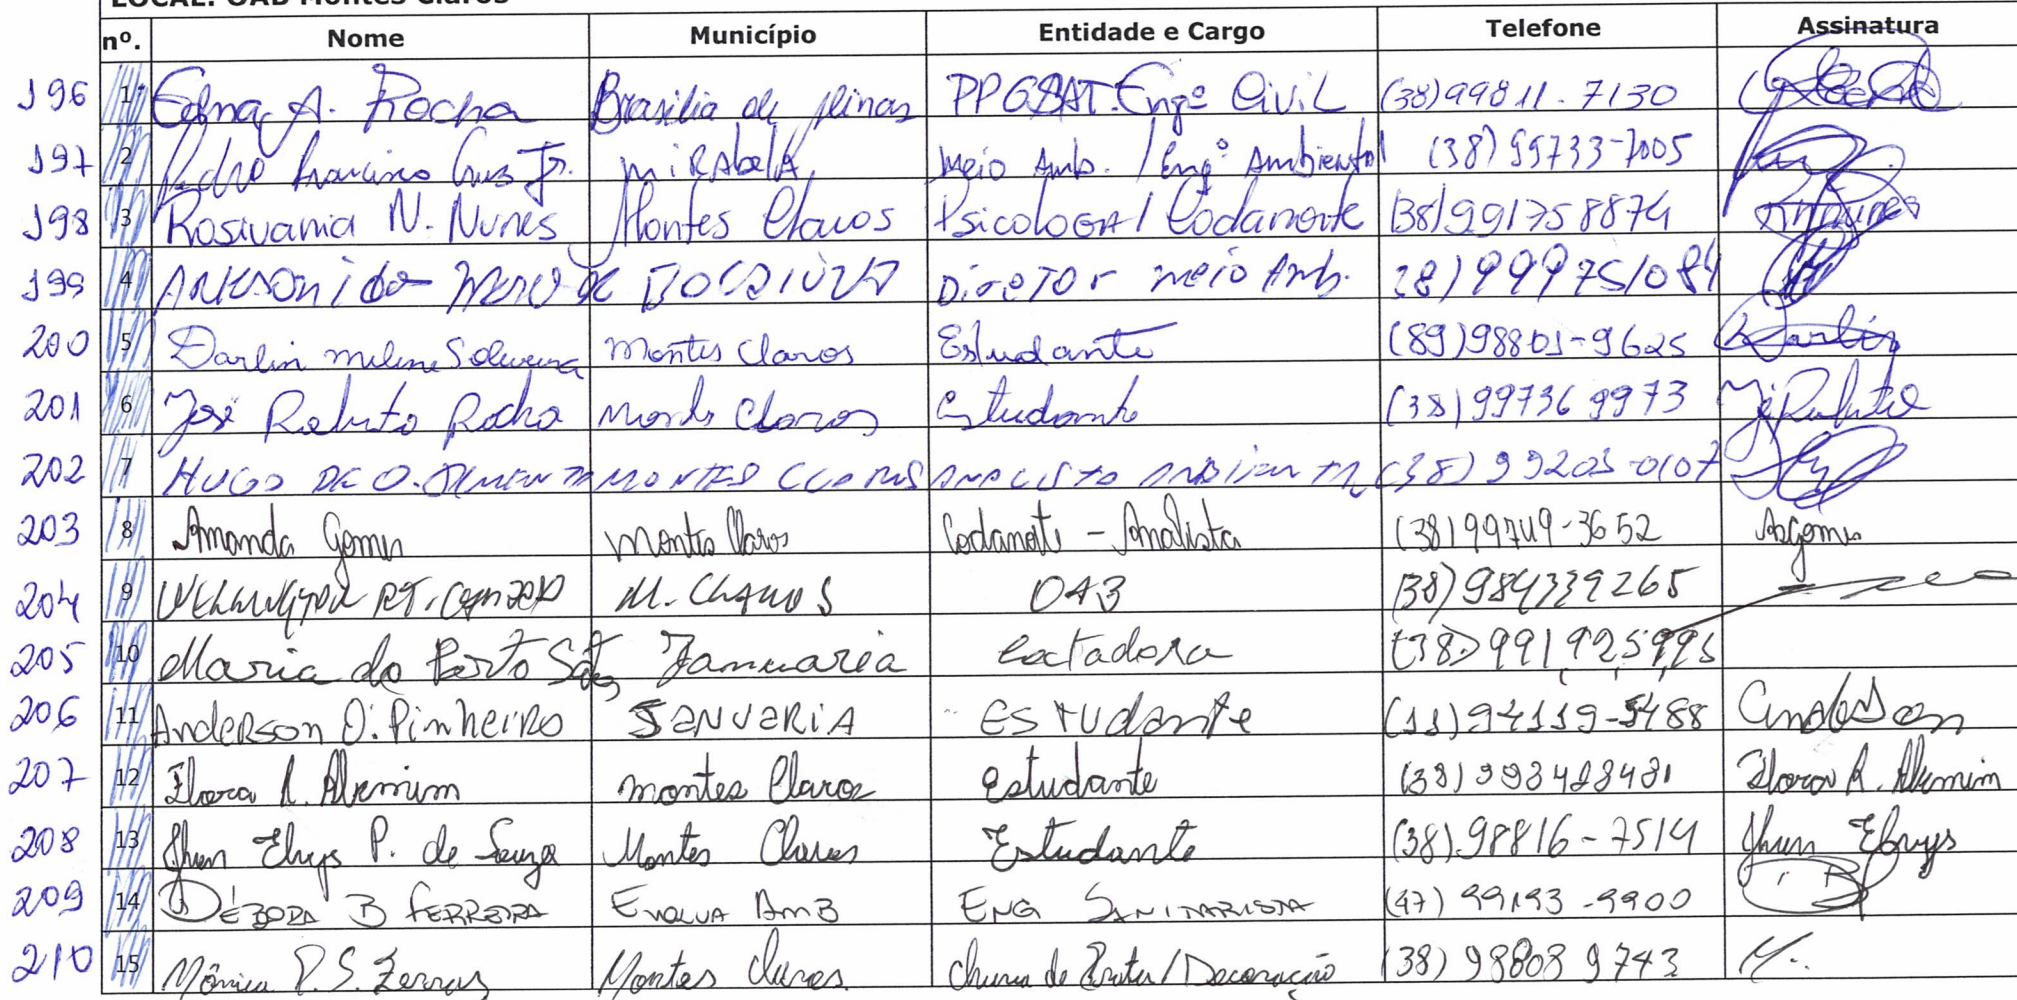 LOCAL: OAB Montes Claros
nº. Nome Município Entidade e Cargo Telefone Assinatura
196 1 Edna A. Rocha Brasilia de Minas PPGSAT. Engº Civil (38)99811.7130
197 2 Pedro Francisco Cruz Jr. MIRAbelA Meio Amb. / Engº Ambiental (38) 99733-7005
198 3 Rosivania N. Nunes Montes Claros Psicologa / Codanorte (38)991758874
199 4 BOCAIÚVA Diretor meio Amb. 38) 999751084
200 5 Darlin milene S oliveira Montes Claros Estudante (89)98801-9625 Darlin
201 6 José Roberto Rocha Montes Claros Estudante (38)997369973 José Roberto
202 7 HUGO DE O. MONTES CLAROS ANALISTA AMBIENTAL (38) 99203-0107
203 8 Amanda Gomes Montes Claros Codanorte - Analista (38)99749-3652 Asgomes
204 9 M. Claros OAB (38) 984339265
205 10 Maria do Porto Januaria (38) 991925995
206 11 Anderson O. Pinheiro JANUARIA Estudante (11) 94119-5488 Anderson
207 12 R. Alkmim Montes Claros Estudante (38) 998428481 R. Alkmim
208 13 P. de Souza Montes Claros Estudante (38).98816-7514
209 14 DÉBORA B FERREIRA EVOLUA AMB ENG SANITARISTA (47) 99193-9900
210 15 Mônica P. S. Montes Claros. / Decoração (38) 98808 9743 M.